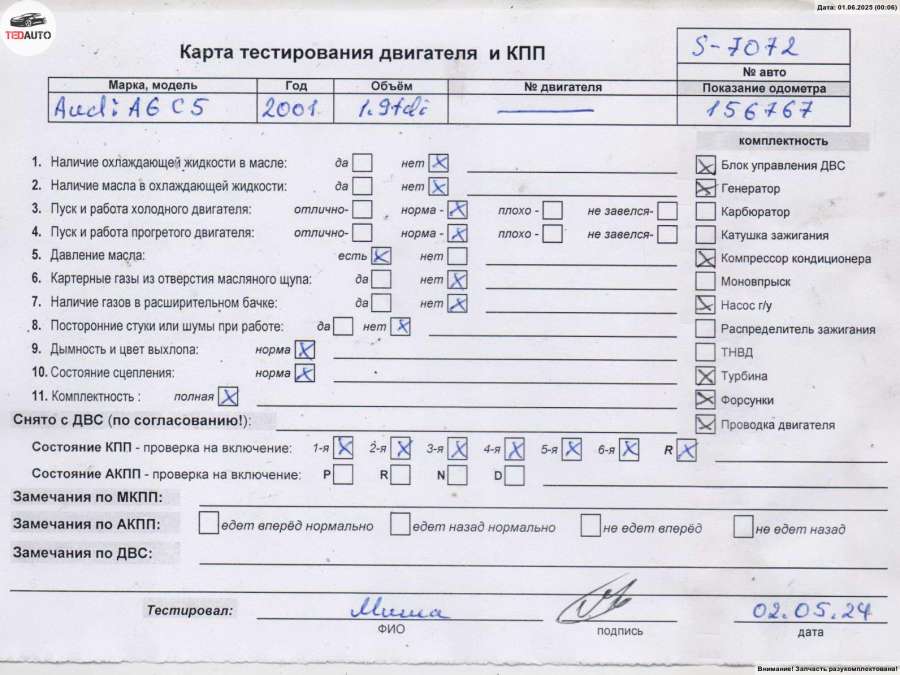 Дата: 01.06.2025 (00:06)
TEDAUTO
Карта тестирования двигателя и КПП
S-7072
№ авто
Марка, модель Год Объём № двигателя Показание одометра
Audi A6 C5 2001. 1.9tdi 156767
комплектность
1. Наличие охлаждающей жидкости в масле: да нет
2. Наличие масла в охлаждающей жидкости: да нет
3. Пуск и работа холодного двигателя: отлично- норма - плохо - не завелся-
4. Пуск и работа прогретого двигателя: отлично- норма - плохо - не завелся-
5. Давление масла: есть нет
6. Картерные газы из отверстия масляного щупа: да нет
7. Наличие газов в расширительном бачке: да нет
8. Посторонние стуки или шумы при работе: да нет
9. Дымность и цвет выхлопа: норма
10. Состояние сцепления: норма
11. Комплектность : полная
Блок управления ДВС
Генератор
Карбюратор
Катушка зажигания
Компрессор кондиционера
Моновпрыск
Насос г/у
Распределитель зажигания
ТНВД
Турбина
Форсунки
Проводка двигателя
Снято с ДВС (по согласованию!):
Состояние КПП - проверка на включение: 1-я 2-я 3-я 4-я 5-я 6-я R
Состояние АКПП - проверка на включение: P R N D
Замечания по МКПП:
Замечания по АКПП: едет вперёд нормально едет назад нормально не едет вперёд не едет назад
Замечания по ДВС:
Тестировал: Миша 02.05.24
ФИО подпись дата
Внимание! Запчасть разукомплектована!